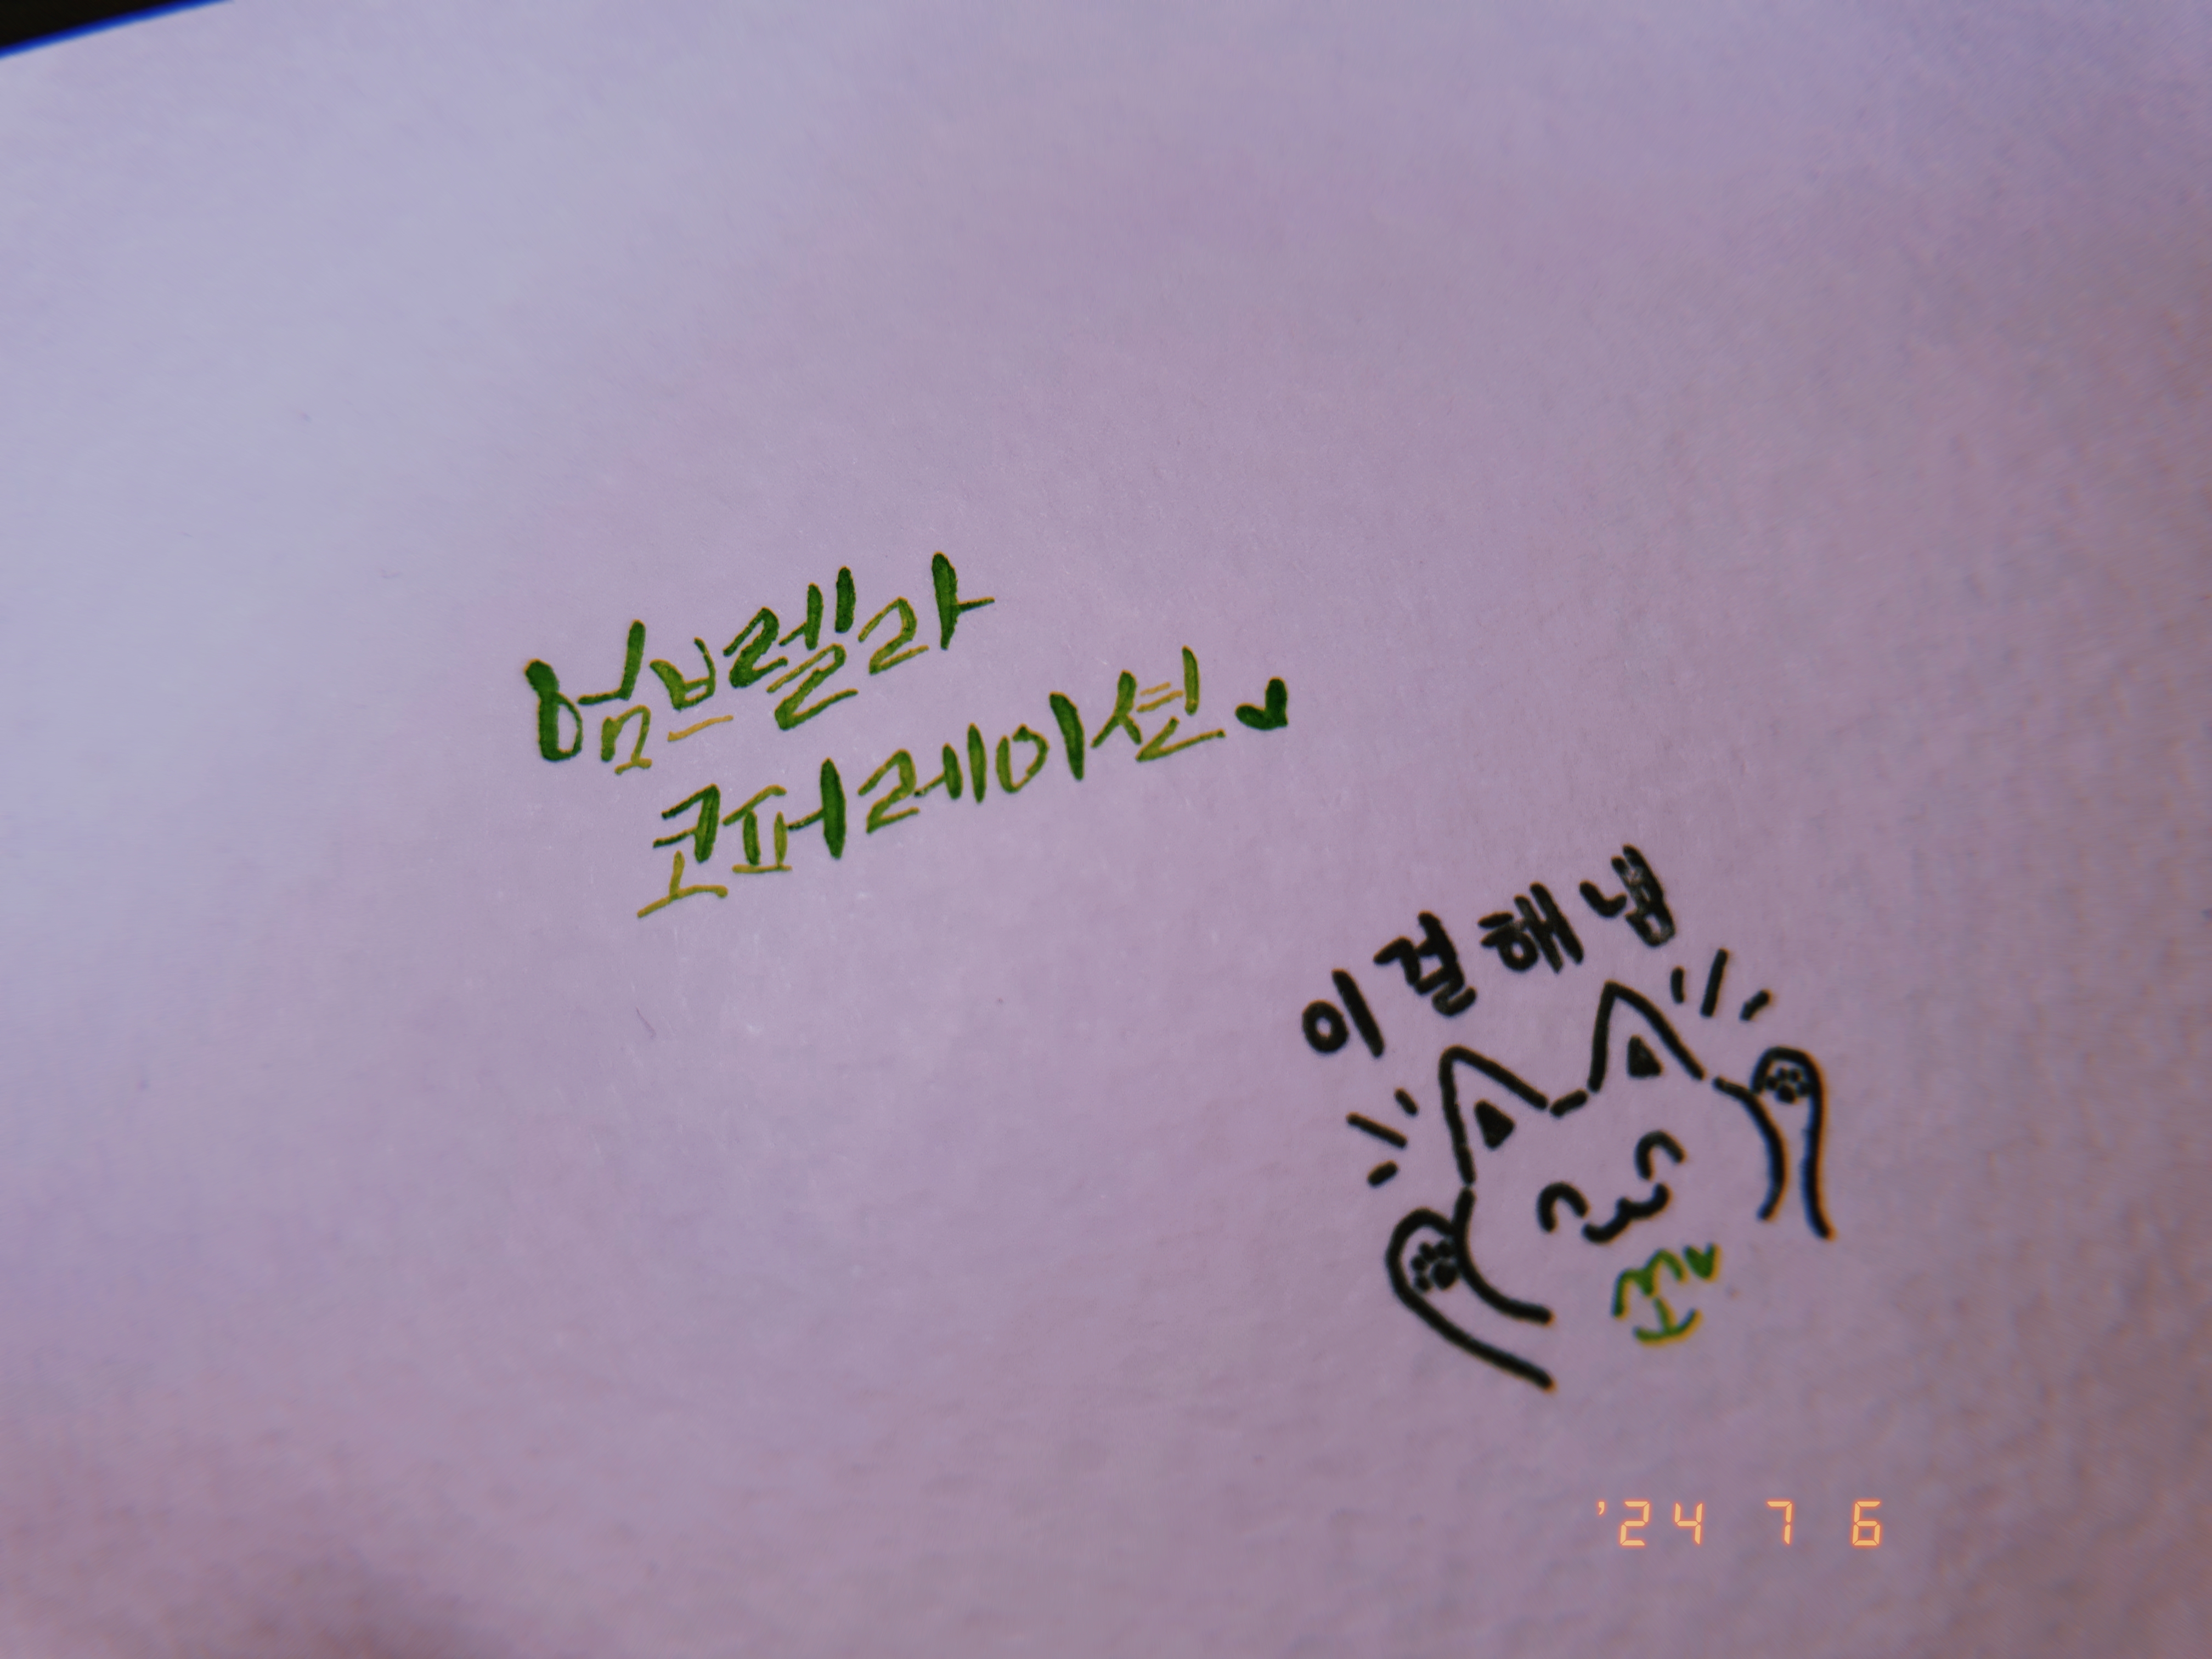 엄브렐라
코퍼레이션♥
이걸해냄
'24 7 6